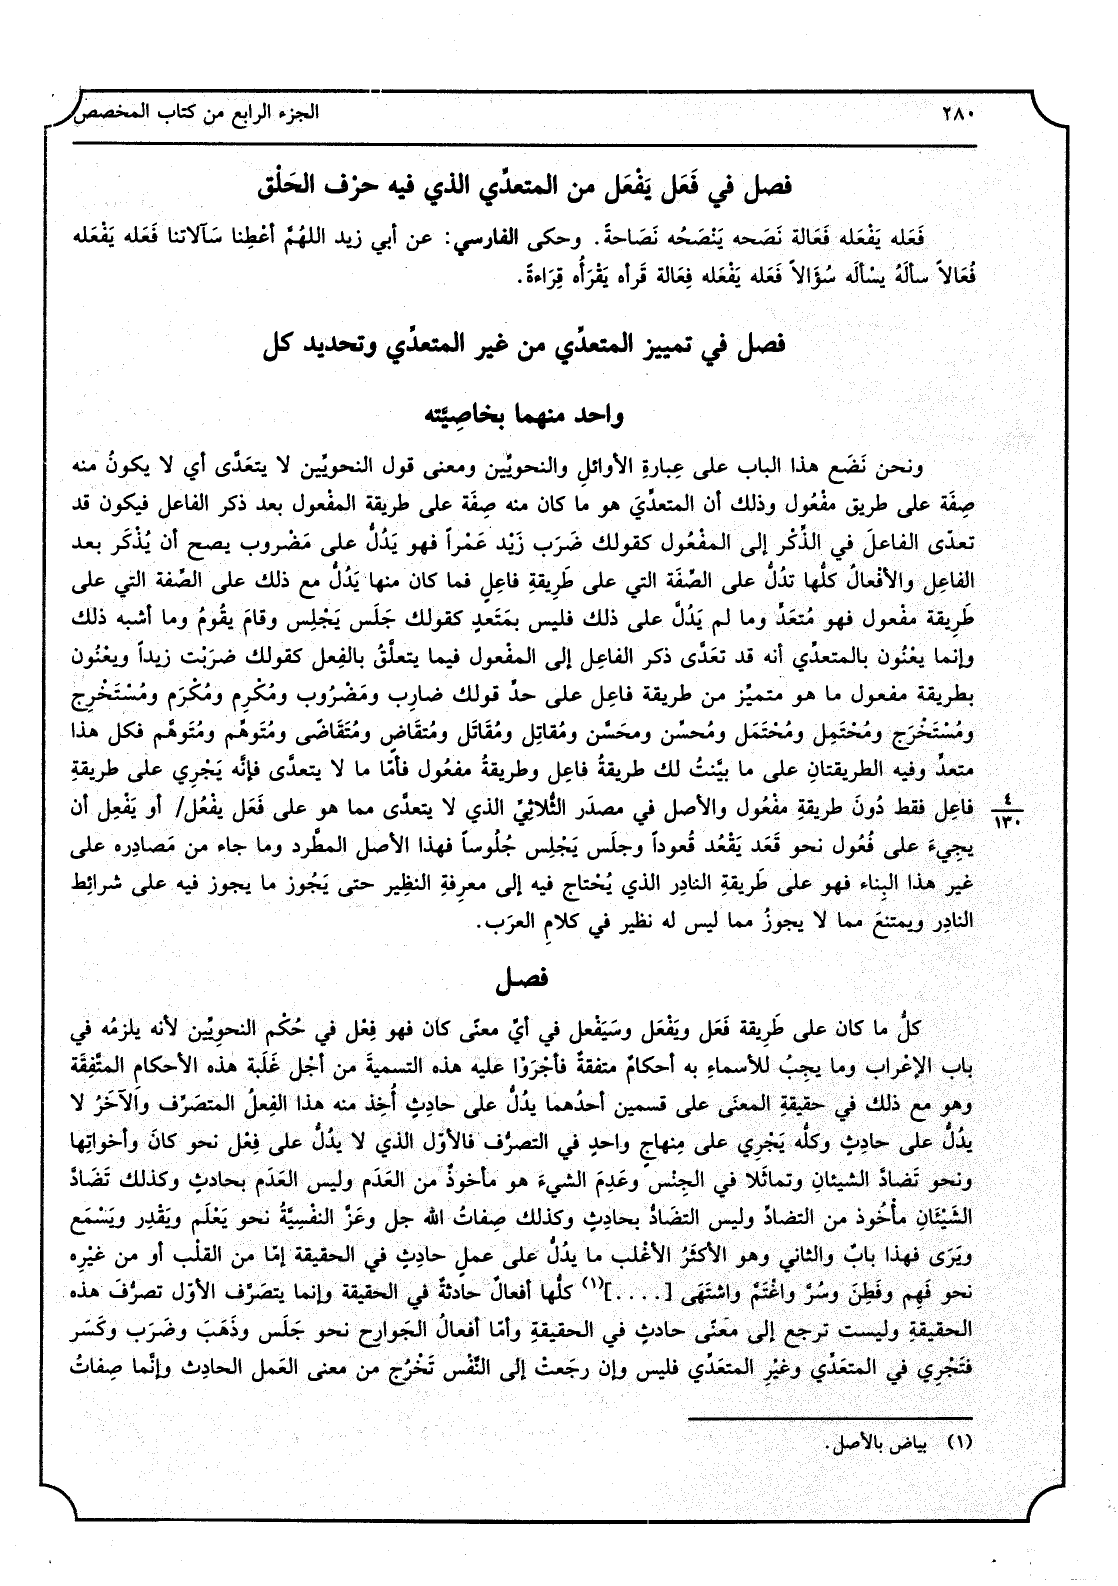 ٢٨٠
الجزء الرابع من كتاب المخصص
فصل في فَعَل يَفْعَل من المتعدِّي الذي فيه حرْف الحَلْق
فَعَله يَفْعَله فَعَالة نَصَحه يَنْصَحُه نَصَاحةً. وحكى الفارسي: عن أبي زيد اللهُمَّ أعْطِنا سَآلاتنا فَعَله يَفْعَله
فُعَالاً سألَهُ يسْألَه سُؤَالاً فَعَله يَفْعَله فِعَالة قَرأه يَقْرَأُه قِرَاءةً.
فصل في تمييز المتعدِّي من غير المتعدِّي وتحديد كل
واحد منهما بخاصِيَّته
ونحن نَضَع هذا الباب على عِبارةِ الأوائلِ والنحويِّين ومعنى قول النحويِّين لا يتعَدَّى أي لا يكونُ منه
صِفَة على طريق مفْعُول وذلك أن المتعدِّيَ هو ما كان منه صِفَة على طريقة المفْعول بعد ذكر الفاعل فيكون قد
تعدّى الفاعلَ في الذِّكْر إلى المفْعُول كقولك ضَرَب زَيْد عَمْراً فهو يَدُلُّ على مَضْروب يصح أن يُذْكَر بعد
الفاعِل والأفْعالُ كلُّها تدُلُّ على الصِّفَة التي على طَرِيقةِ فاعِلٍ فما كان منها يَدُلُّ مع ذلك على الصِّفة التي على
طَرِيقة مفْعول فهو مُتعَدٍّ وما لم يَدُلَّ على ذلك فليس بمَتعَدٍ كقولك جَلَس يَجْلِس وقامَ يقُومُ وما أشبه ذلك
وإنما يعْنُون بالمتعدِّي أنه قد تعَدَّى ذكر الفاعِل إلى المفْعول فيما يتعلَّقُ بالفِعل كقولك ضرَبْت زيداً ويعْنُون
بطريقة مفعول ما هو متميِّز من طريقة فاعِل على حدِّ قولك ضارِب ومَضْرُوب ومُكْرِم ومُكْرَم ومُسْتَخْرِج
ومُسْتَخْرَج ومُحْتَمِل ومُحْتَمَل ومُحسِّن ومحَسَّن ومُقاتِل ومُقَاتَل ومُتقَاضٍ ومُتَقَاضًى ومُتَوهِّم ومُتَوهَّم فكل هذا
متعدٍّ وفيه الطريقتانِ على ما بيَّنتُ لك طريقةُ فاعِل وطريقةُ مفعُول فأمَّا ما لا يتعدَّى فإنَّه يَجْرِي على طريقةِ
فاعِل فقط دُونَ طريقةِ مفْعُول والأصل في مصدَر الثُّلاثِيِّ الذي لا يتعدَّى مما هو على فَعَل يفْعُل/ أو يَفْعِل أن
٤
١٣٠
يجِيءَ على فُعُول نحو قَعَد يَقْعُد قُعوداً وجلَس يَجْلِس جُلُوساً فهذا الأصل المطَّرد وما جاء من مَصادِره على
غير هذا البِناء فهو على طَرِيقةِ النادِر الذي يُحْتاج فيه إلى معرِفةِ النظِير حتى يَجُوز ما يجوز فيه على شرائِط
النادِر ويمتنعَ مما لا يجوزُ مما ليس له نظير في كلامِ العرَب.
فصل
كلُّ ما كان على طَرِيقة فَعَل ويَفْعَل وسَيَفْعل في أيِّ معنًى كان فهو فِعْل في حُكْم النحويِّين لأنه يلزمُه في
باب الإعْراب وما يجِبُ للأسماءِ به أحكامٌ متفقةٌ فأجْرَوْا عليه هذه التسميةَ من أجْل غَلَبة هذه الأحكامِ المتَّفِقَة
وهو مع ذلك في حقيقةِ المعنَى على قسمين أحدُهما يدُلُّ على حادِثٍ أُخِذ منه هذا الفِعلُ المتصَرِّف والآخَرُ لا
يدُلُّ على حادِثٍ وكلُّه يَجْرِي على مِنهاجٍ واحدٍ في التصرُّف فالأوّل الذي لا يدُلُّ على فِعْل نحو كانَ وأخواتِها
ونحو تَضادَّ الشيئانِ وتماثَلا في الجِنْس وعَدِمَ الشيءَ هو مأخوذٌ من العَدَم وليس العَدَم بحادثٍ وكذلك تَضَادَّ
الشَّيْئانِ مأْخُوذ من التضادِّ وليس التضَادُّ بحادِثٍ وكذلك صِفاتُ الله جل وعَزَّ النفْسِيَّةُ نحو يَعْلَم ويَقْدِر ويَسْمَع
ويَرَى فهذا بابٌ والثاني وهو الأكثَرُ الأغْلب ما يدُلُّ على عملٍ حادِثٍ في الحقيقة إمَّا من القلْب أو من غيْرِه
نحو فَهِم وفَطِنَ وسُرَّ واغْتَمَّ واشتَهَى [....](١) كلُّها أفعالٌ حادثةٌ في الحقيقة وإنما يتصَرَّف الأوّل تصرُّفَ هذه
الحقيقةِ وليست ترجع إلى معْنًى حادثٍ في الحقيقةِ وأمّا أفعالُ الجَوارِح نحو جَلَس وذَهَبَ وضَرَب وكَسَر
فتَجْرِي في المتعَدِّي وغيْرِ المتعَدِّي فليس وإن رجَعتْ إلى النَّفْس تَخْرُج من معنى العَمل الحادث وإنَّما صِفاتُ
(١) بياض بالأصل.